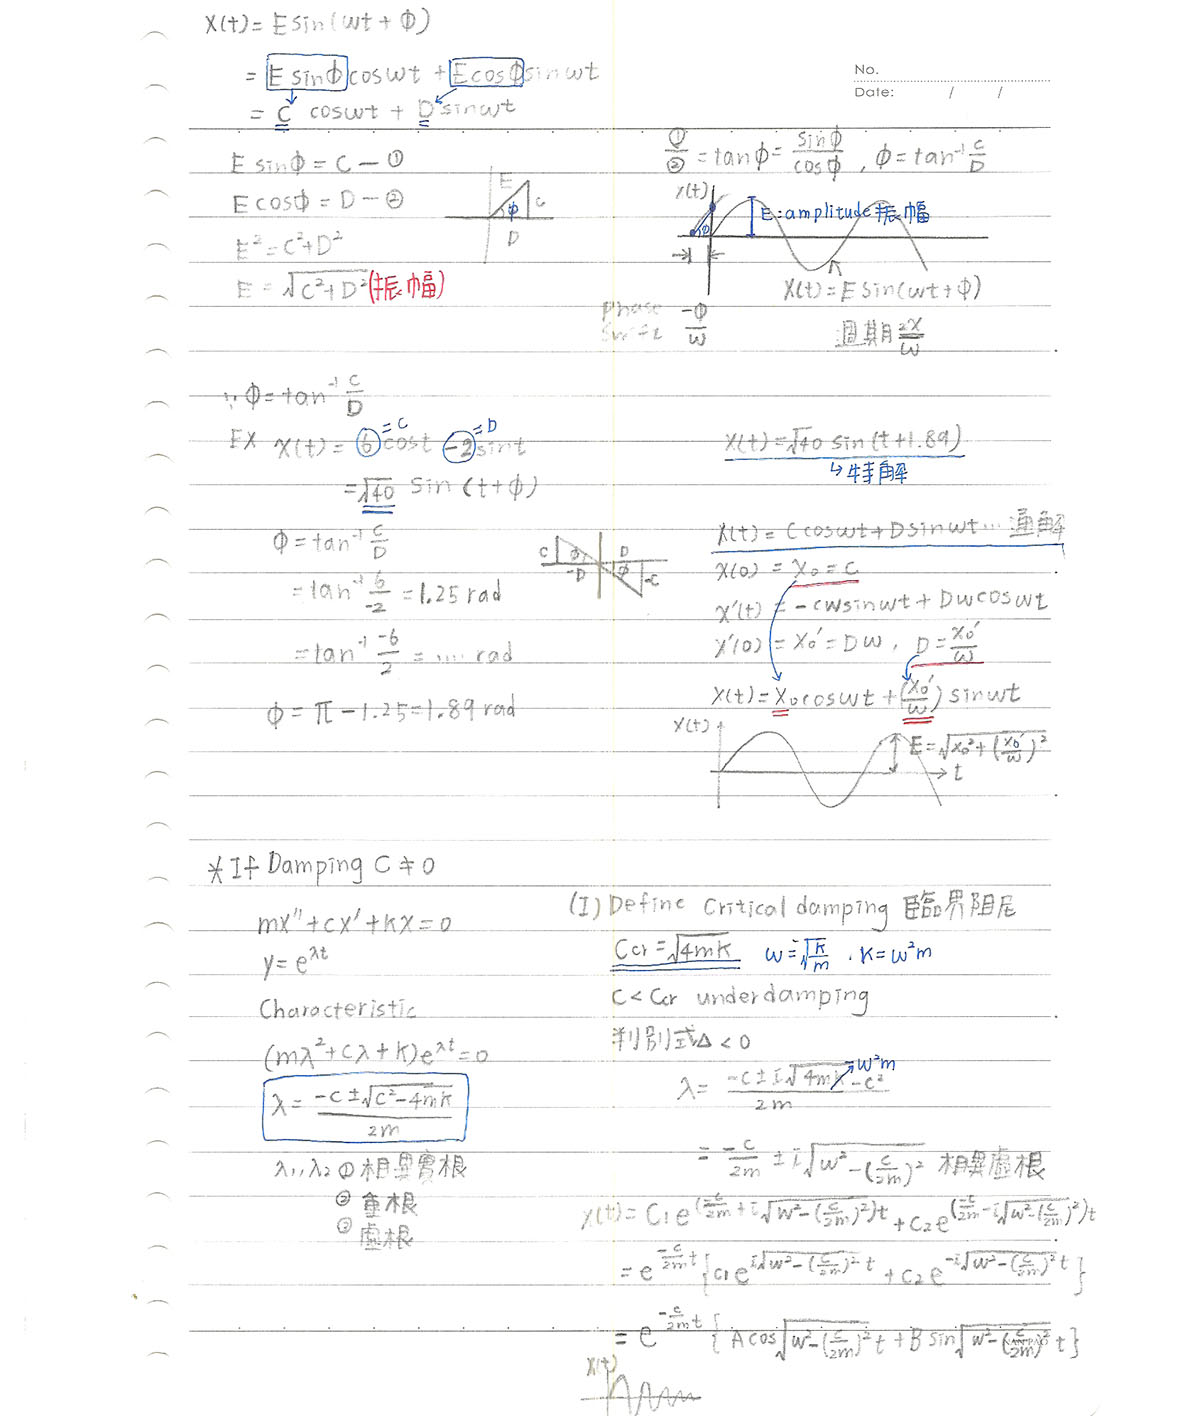 x(t) = E sin(ωt + φ)
= E sinφ cosωt + E cosφ sinωt
= C cosωt + D sinωt
No.
Date: / /
E sinφ = C — ①
E cosφ = D — ②
E² = C² + D²
E = √(C² + D²) (振幅)
E
C
φ
D
①/② = tanφ = sinφ/cosφ , φ = tan⁻¹ C/D
x(t)
E: amplitude 振幅
φ
x(t) = E sin(ωt + φ)
Phase
-φ/ω
週期 2π/ω
∵ φ = tan⁻¹ C/D
=C =D
EX x(t) = 6 cost -2 sint
= √40 sin (t + φ)
φ = tan⁻¹ C/D
= tan⁻¹ 6/-2 = 1.25 rad
= tan⁻¹ -6/2 = .... rad
φ = π - 1.25 = 1.89 rad
C φ D
-D φ -C
x(t) = √40 sin (t + 1.89)
↳ 特解
x(t) = C cosωt + D sinωt ... 通解
x(0) = x₀ = C
x'(t) = -Cω sinωt + Dω cosωt
x'(0) = x₀' = Dω , D = x₀'/ω
x(t) = x₀ cosωt + (x₀'/ω) sinωt
x(t)
E = √(x₀² + (x₀'/ω)²)
t
* If Damping C ≠ 0
mx'' + cx' + kx = 0
y = e^(λt)
Characteristic
(mλ² + cλ + k) e^(λt) = 0
λ = (-c ± √(c² - 4mk)) / 2m
λ₁, λ₂ ① 相異實根
② 重根
③ 虛根
(I) Define Critical damping 臨界阻尼
Ccr = √4mk ω = √(k/m) . k = ω²m
C < Ccr underdamping
判別式 Δ < 0
ω²m
λ = (-c ± i√(4mk - c²)) / 2m
= -c/2m ± i√(ω² - (c/2m)²) 相異虛根
x(t) = C₁e^(-c/2m + i√(ω² - (c/2m)²))t + C₂e^(-c/2m - i√(ω² - (c/2m)²))t
= e^(-c/2m t) {C₁e^(i√(ω² - (c/2m)²) t) + C₂e^(-i√(ω² - (c/2m)²) t)}
= e^(-c/2m t) {A cos√(ω² - (c/2m)²) t + B sin√(ω² - (c/2m)²) t}
x(t)